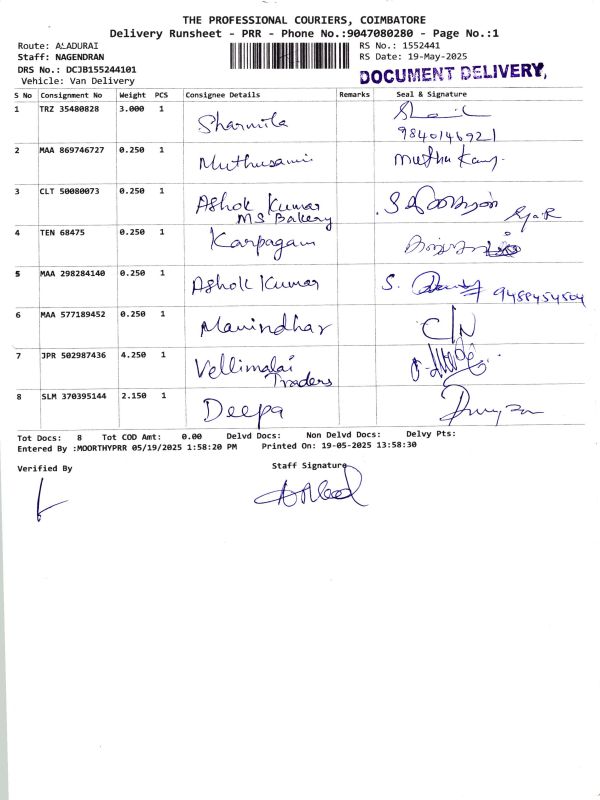 THE PROFESSIONAL COURIERS, COIMBATORE
Delivery Runsheet - PRR - Phone No.:9047080280 - Page No.:1
Route: ALADURAI
RS No.: 1552441
Staff: NAGENDRAN
RS Date: 19-May-2025
DRS No.: DCJB155244101
DOCUMENT DELIVERY,
Vehicle: Van Delivery
S No Consignment No Weight PCS Consignee Details Remarks Seal & Signature
1 TRZ 35480828 3.000 1 Sharmila
9840146921
2 MAA 869746727 0.250 1 Muthusami Muthu Kam
3 CLT 50080073 0.250 1 Ashok Kumar
MS Bakery
4 TEN 68475 0.250 1 Karpagam
5 MAA 298284140 0.250 1 Ashok Kumar S. 9488454504
6 MAA 577189452 0.250 1 Manindhar C/N
7 JPR 502987436 4.250 1 Vellimalai
Traders
8 SLM 370395144 2.150 1 Deepa
Tot Docs: 8 Tot COD Amt: 0.00 Delvd Docs: Non Delvd Docs: Delvy Pts:
Entered By :MOORTHYPRR 05/19/2025 1:58:20 PM Printed On: 19-05-2025 13:58:30
Verified By Staff Signature